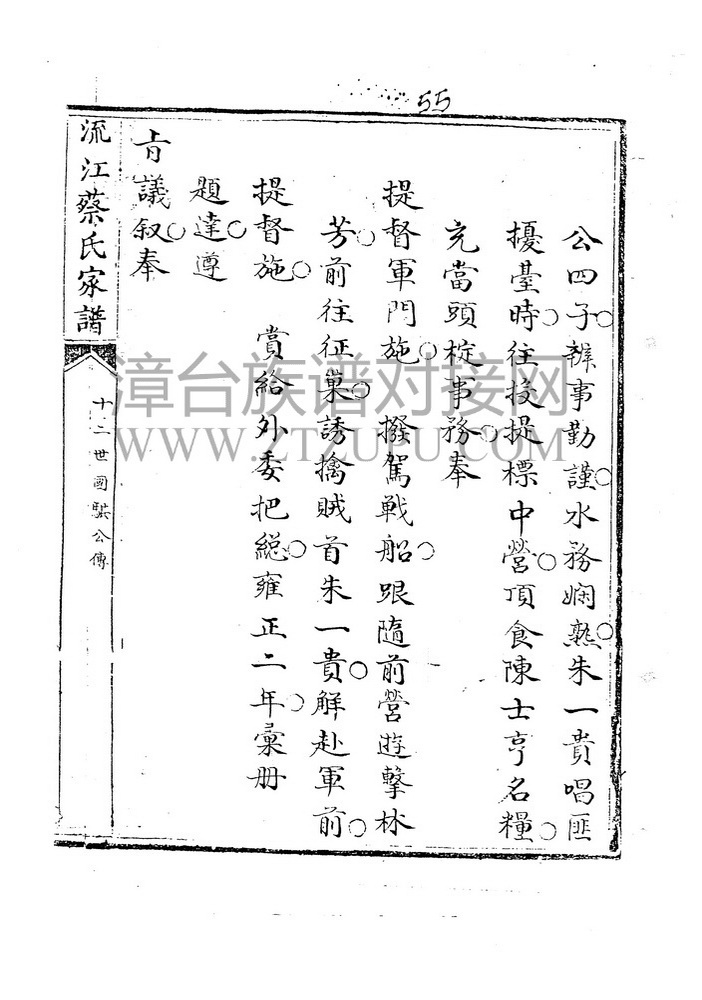 55
公四子。辦事勤謹。水務嫻熟。朱一貴唱匪
擾臺時。往投提標中營。頂食陳士亨名糧。
充當頭椗事務。奉
提督軍門施。撥駕戰船。跟隨前營遊擊林
芳。前往征巢。誘擒賊首朱一貴。解赴軍前。
提督施。 賞給外委把總。雍正二年。彙冊
題達。遵
旨議叙。奉
流江蔡氏家譜
十二世國騏公傳
漳台族谱对接网
WWW.ZTZUPU.COM